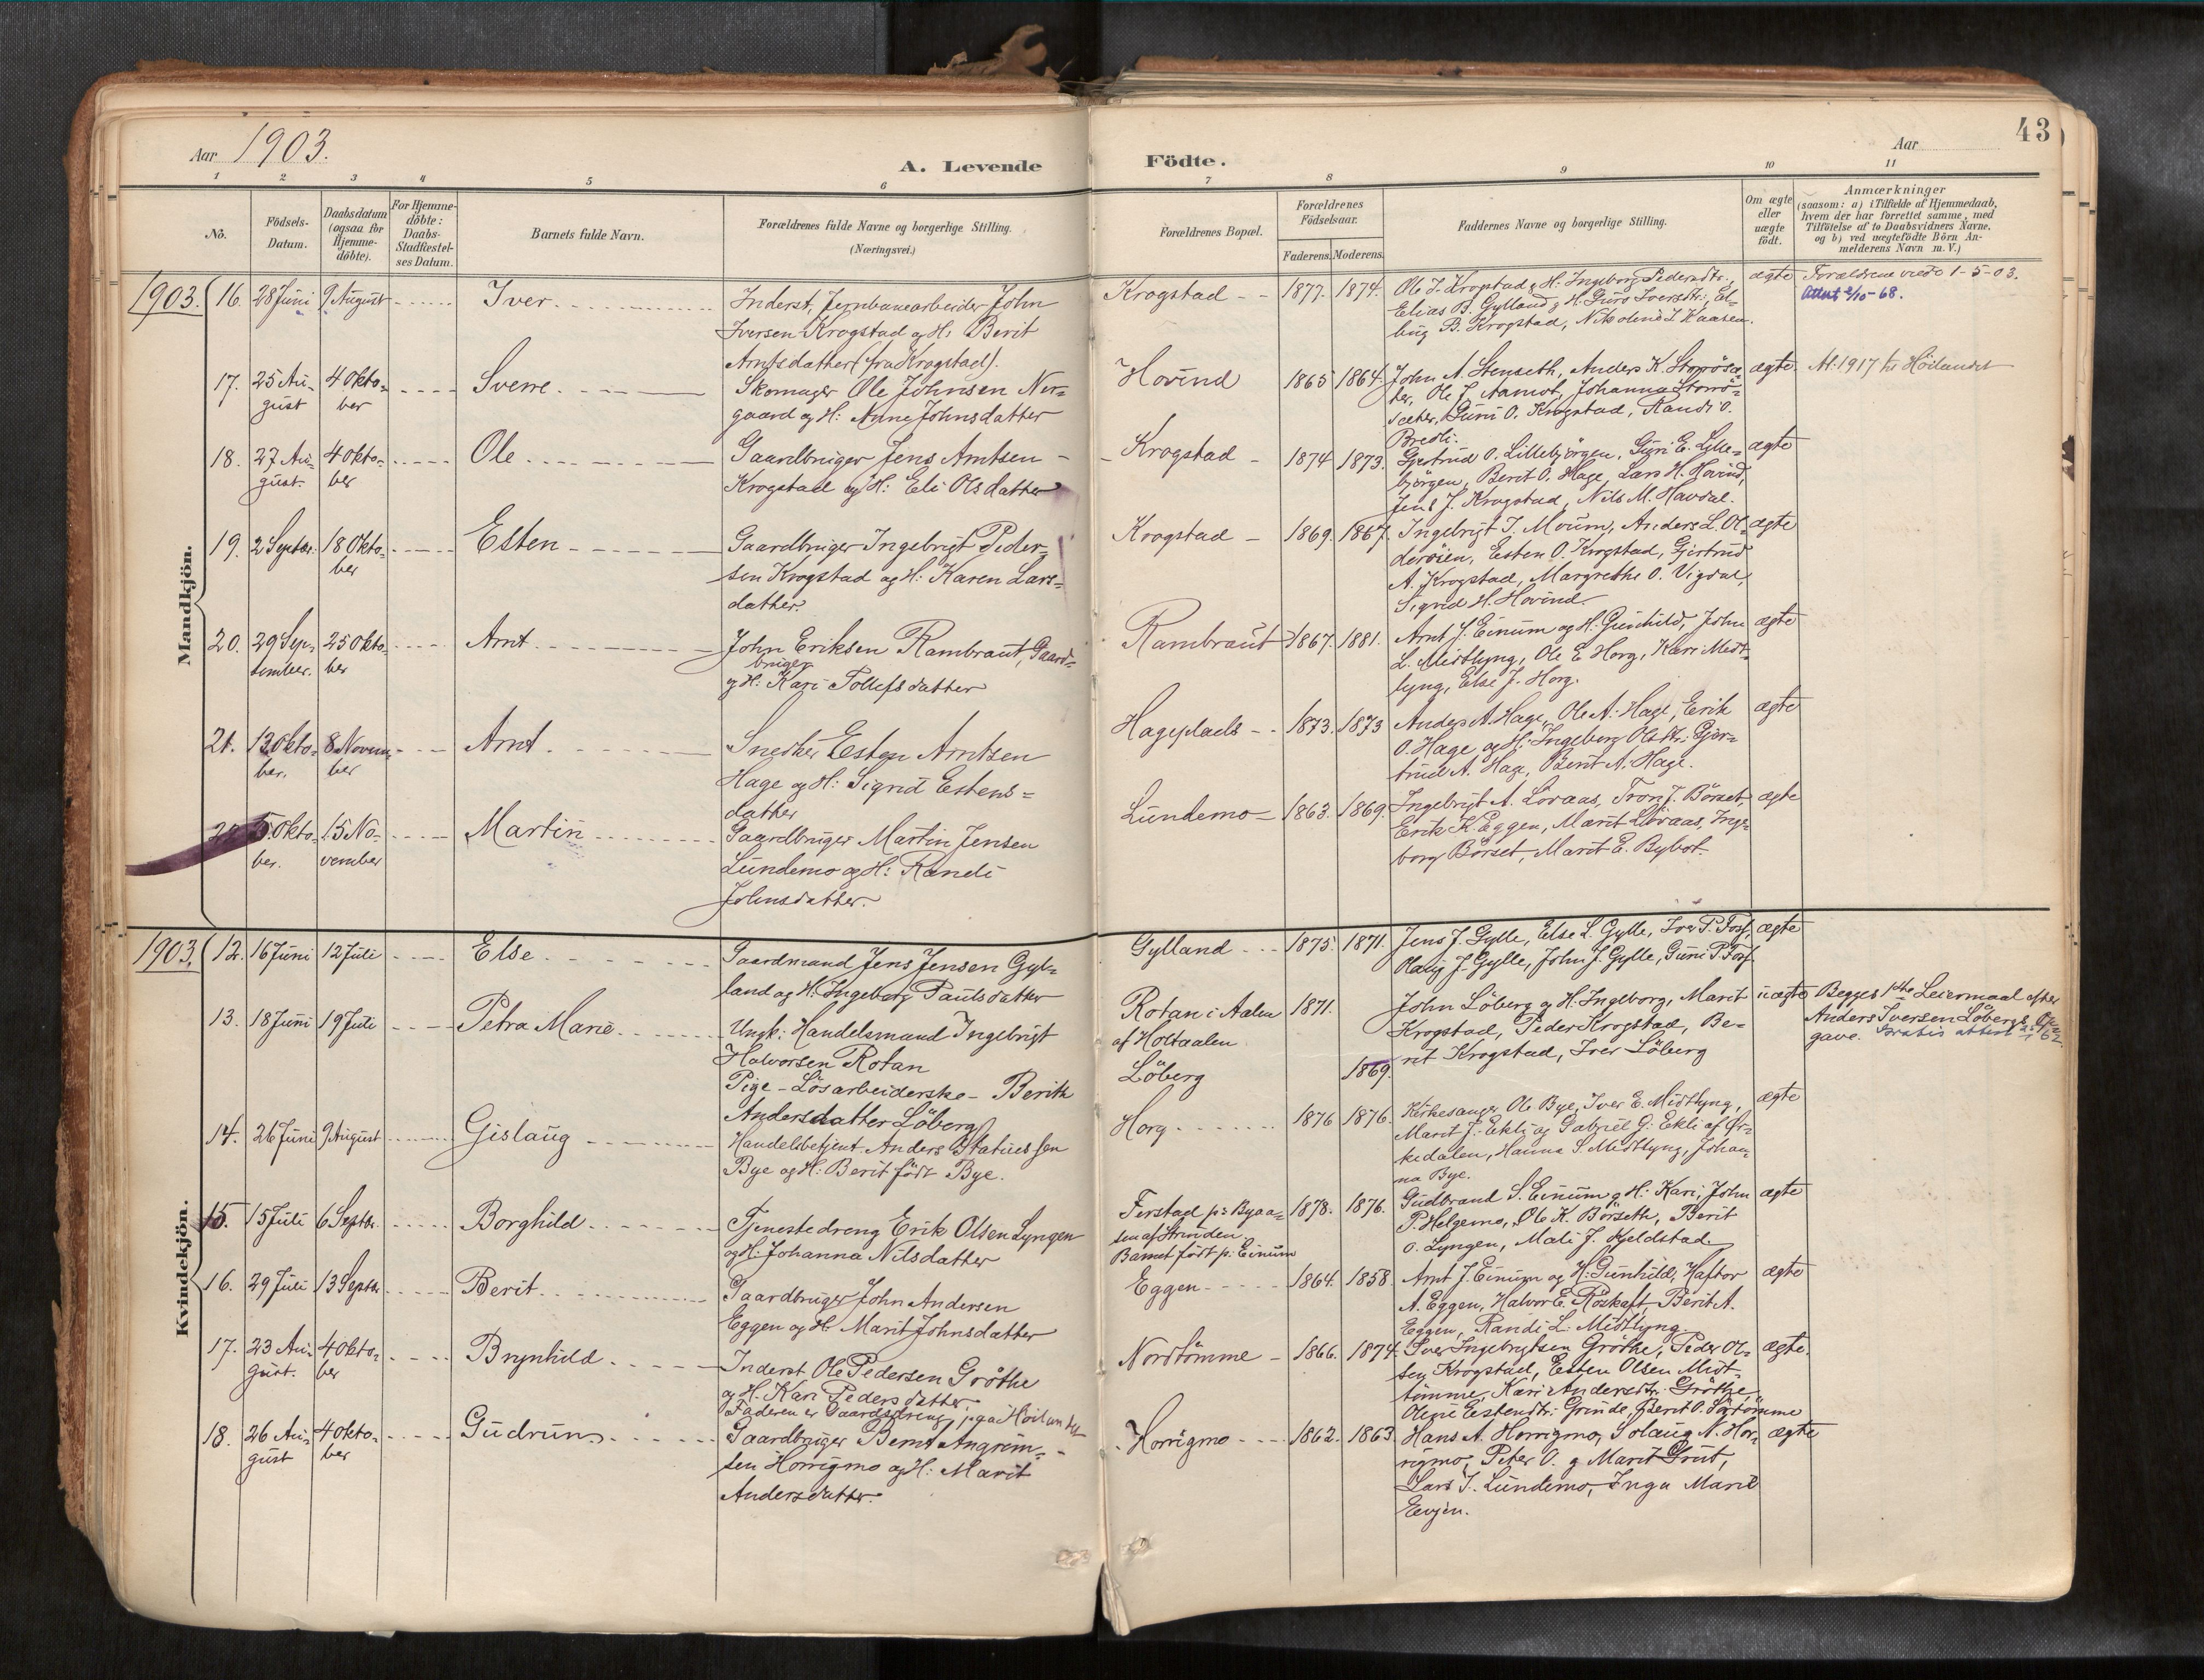 43
Aar 1903.
A. Levende
Födte.
Aar
1 2 3 4 5 6 7 8 9 10 11
No.
Födsels-
Datum.
Daabsdatum
(ogsaa for
Hjemme-
döbte).
For Hjemme-
döbte:
Daabs-
Stadfæstel-
ses Datum.
Barnets fulde Navn.
Forældrenes fulde Navne og borgerlige Stilling.
(Næringsvei.)
Forældrenes Bopæl.
Forældrenes
Födselsaar.
Faderens. Moderens.
Faddernes Navne og borgerlige Stilling.
Om ægte
eller
uægte
födt.
Anmærkninger
(saasom: a) i Tilfælde af Hjemmedaab,
hvem der har forrettet samme, med
Tilföielse af to Daabsvidners Navne,
og b) ved uægtefödte Börn An-
melderens Navn m. V.)
Mandkjön.
1903.
16. 28 Juni 9 August Iver
Inderst, Jernbanearbeider John
Iversen Krogstad og H: Berit
Arntsdatter (fra Krogstad).
Krogstad 1877. 1874.
Ole J. Krogstad og H: Ingeborg Pedersdtr.,
Elias B. Gylland og H: Guro Iversdtr., El-
ling B. Krogstad, Nikoline I. Kaasen.
ægte
Forældrene viede 1-5-03.
Attest 2/10-68.
17. 25 Au-
gust
4 Okto-
ber
Sverre
Skomager Ole Johnsen Nor-
gaard og H: Anne Johnsdatter
Hovind 1865 1864.
John A. Stenseth, Anders K. Storrösæ-
ter, Ole J. Aamot, Johanna Storrö-
sæter, Guri O. Krogstad, Randi O.
Bredli.
ægte
At. 1917 til Höilandet
18. 27 Au-
gust.
4 Okto-
ber
Ole
Gaardbruger Jens Arntsen
Krogstad og H: Eli Olsdatter
Krogstad 1874 1873.
Gjertrud O. Lillebjörgen, Guri E. Lille-
björgen, Berit O. Hage, Lars H. Hovind,
Jens J. Krogstad, Nils M. Havdal.
ægte
19. 2 Septbr. 18 Okto-
ber
Esten
Gaardbruger Ingebrigt Peder-
sen Krogstad og H: Karen Lars-
datter.
Krogstad 1869. 1867.
Ingebrigt I. Moum, Anders L. Ol-
derøien, Esten O. Krogstad, Gjertrud
A. Krogstad, Margrethe O. Vigdal,
Sigrid H. Hovind.
ægte
20. 29 Sep-
tember.
25 Okto-
ber
Arnt
John Eriksen Rambraut, Gaard-
bruger
og H: Kari Tollefsdatter
Rambraut 1867. 1881.
Arnt J. Einum og H: Gunhild, John
L. Midtlyng, Ole E. Horg, Kari Midt-
lyng, Else J. Horg.
ægte
21. 13 Okto-
ber.
8 Novem-
ber
Arnt
Snedker Esten Arntsen
Hage og H: Sigrid Estens-
datter
Hageplads 1873. 1873
Anders A. Hage, Ole A. Hage, Erik
O. Hage og H: Ingeborg Olsdtr. Gjer-
trud A. Hage, Berit A. Hage.
ægte
22. 5 Okto-
ber.
15 No-
vember
Martin
Gaardbruger Martin Jensen
Lundemo og H: Randi
Johnsdatter.
Lundemo 1863. 1869.
Ingebrigt A. Lövaas, Tron J. Börset,
Erik K. Eggen, Marit Lövaas, Inge-
borg Börset, Marit E. Bybot.
ægte
Kvindekjön.
1903.
12. 16 Juni 12 Juli Else
Gaardmand Jens Jensen Gyl-
land og H: Ingeborg Paulsdatter
Gylland 1875. 1871.
Jens J. Gylle, Else L. Gylle, Iver P. Fosf,
Olaug J. Gylle, John J. Gylle, Guru P. Fosf
ægte
13. 18 Juni 19 Juli Petra Marie
Ungk: Handelsmand Ingebrigt
Halvorsen Rotan
Pige - Lösarbeiderske - Berith
Andersdatter Löberg
Rotan i Aalen
af Holtaalen
Löberg
1871.
1869.
John Löberg og H: Ingeborg, Marit
Krogstad, Peder Krogstad, Be-
rit Krogstad, Iver Löberg
uægte
Begges 1ste Leiermaal efter
Anders Iversen Löbergs Op-
gave. Gratis attest
14. 26 Juni 9 August Gislaug
Handelsbetjent Anders Statiussen
Bye og H: Berit födt Bye.
Horg 1876 1876.
Kirkesanger Ole Bye, Iver E. Midtlyng,
Marit J. Ekli og Gabriel G. Ekli af Ør-
kedalen, Hanna S. Midtlyng, Johan-
na Bye.
ægte
15. 15 Juli 6 Septbr. Borghild
Tjenestedreng Erik Olsen Lyngen
og H: Johanna Nilsdatter
Ferstad p: Byaa-
sen af Strinden.
Barnet födt p: Einum
1878. 1876.
Gudbrand S. Einum og H: Kari, John
P. Helgemo, Ole K. Börseth, Berit
O. Lyngen, Mali J. Kjeldstad
ægte
16. 29 Juli 13 Septbr Berit
Gaardbruger John Andersen
Eggen og H: Marit Johnsdatter
Eggen 1864. 1858
Arnt J. Einum og H: Gunhild, Haftor
A. Eggen, Halvor E. Röskaft, Berit A.
Eggen, Randi L. Midtlyng.
ægte
17. 23 Au-
gust.
4 Okto-
ber
Brynhild
Inderst Ole Pedersen Gröthe
og H: Kari Pedersdatter.
Faderen er Gaardsdreng p: Höilandet
Nordtömme 1866. 1874.
Iver Ingebrigtsen Gröthe, Peder Ol-
sen Krogstad, Esten Olsen Midt-
tömme, Kari Andersdtr. Gröthe,
Oline Estensdtr. Grinde, Berit O. Sörtömme
ægte.
18. 26 Au-
gust
4 Okto-
ber
Gudrun
Gaardbruger Bernt Angrim-
sen Horrigmo og H: Marit
Andersdatter.
Horrigmo 1862. 1863.
Hans A. Horrigmo, Solaug N. Hor-
rigmo, Peter O. og Marit Grut,
Lars I. Lundemo, Inga Marie
Eevjen.
ægte